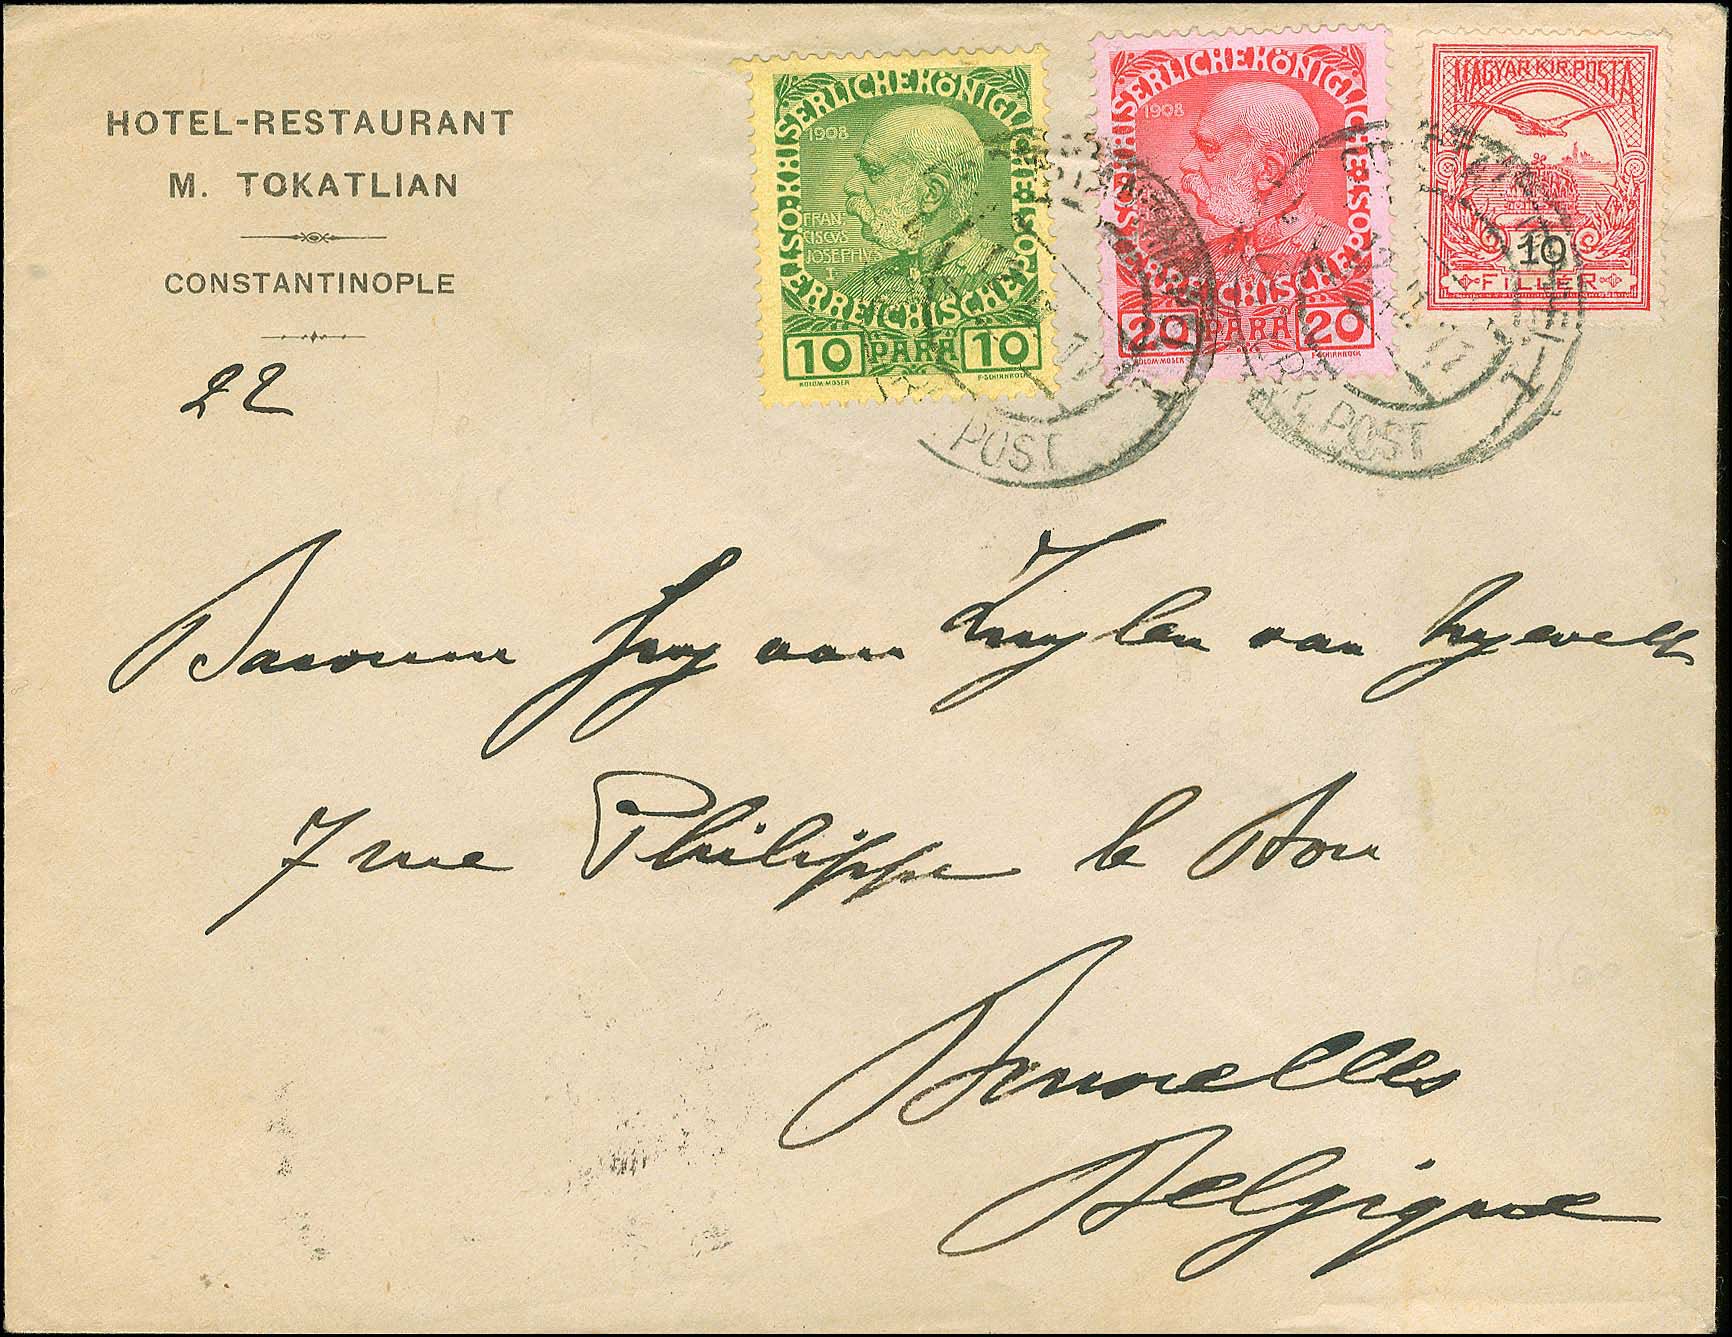 HOTEL-RESTAURANT
M. TOKATLIAN
CONSTANTINOPLE
22
KAISERLICHE KÖNIGLICHE ÖSTERREICHISCHE
1908
FRAN-
CISCVS
JOSEPHVS
I
10 PARA 10
KOLOM. MOSER F. SCHIRNBÖCK
KAISERLICHE KÖNIGLICHE ÖSTERREICHISCHE
1908
20 PARA 20
KOLOM. MOSER F. SCHIRNBÖCK
MAGYAR KIR. POSTA
10
FILLER
POST
POST
Baronne Guy van Zuylen van Nyevelt
7 rue Philippe le Bon
Bruxelles
Belgique